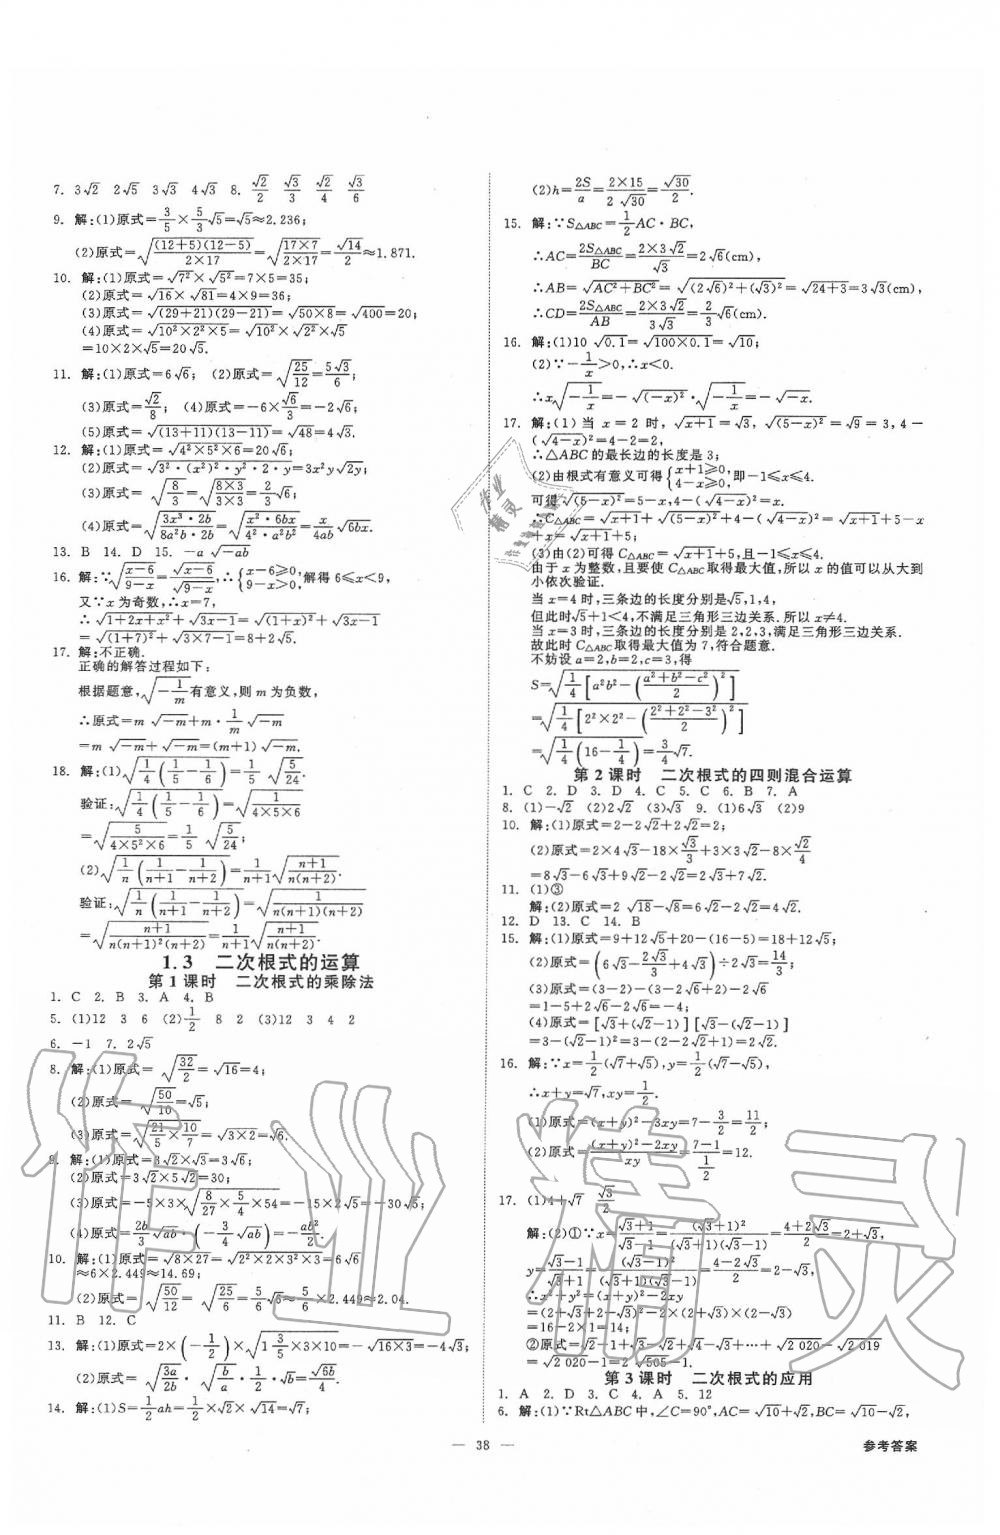 7. 3√2  2√5  3√3  4√3  8. √2/2  √3/3  √2/4  √3/6
9. 解:(1)原式=3/5×5/3√5=√5≈2.236;
(2)原式=√((12+5)(12-5)/(2×17))=√(17×7/(2×17))=√14/2≈1.871.
10. 解:(1)原式=√7²×√5²=7×5=35;
(2)原式=√16×√81=4×9=36;
(3)原式=√((29+21)(29-21))=√(50×8)=√400=20;
(4)原式=√(10²×2²×5)=√10²×√2²×√5
=10×2×√5=20√5.
11. 解:(1)原式=6√6; (2)原式=√(25/12)=5√3/6;
(3)原式=√2/8; (4)原式=-6×√6/3=-2√6;
(5)原式=√((13+11)(13-11))=√48=4√3.
12. 解:(1)原式=√(4²×5²×6)=20√6;
(2)原式=√(3²·(x²)²·y²·2·y)=3x²y√(2y);
(3)原式=√(8/3)=√(8×3/(3×3))=2/3√6;
(4)原式=√(3x³·2b/(8a²b·2b))=√(x²·6bx/(4²·a²·b²))=x/(4ab)√(6bx).
13. B  14. D  15. -a√(-ab)
16. 解:∵√((x-6)/(9-x))=√(x-6)/√(9-x),∴{x-6≥0, 9-x>0,解得6≤x<9,
又∵x为奇数,∴x=7,
∴√(1+2x+x²)+√(3x-1)=√((1+x)²)+√(3x-1)
=√((1+7)²)+√(3×7-1)=8+2√5.
17. 解:不正确.
正确的解答过程如下:
根据题意,√(-1/m)有意义,则m为负数,
∴原式=m√(-m)+m·1/m√(-m)
=m√(-m)+√(-m)=(m+1)√(-m).
18. 解:(1)√(1/4(1/5-1/6))=1/5√(5/24).
验证:√(1/4(1/5-1/6))=√(1/(4×5×6))
=√(5/(4×5²×6))=1/5√(5/24);
(2)√(1/n(1/(n+1)-1/(n+2)))=1/(n+1)√((n+1)/(n(n+2))).
验证:√(1/n(1/(n+1)-1/(n+2)))=√(1/(n(n+1)(n+2)))
=√((n+1)/(n(n+1)²(n+2)))=1/(n+1)√((n+1)/(n(n+2))).
1.3 二次根式的运算
第1课时 二次根式的乘除法
1. C  2. B  3. A  4. B
5. (1)12  3  6  (2)1/2  8  2  (3)12  3  4  2
6. -1  7. 2√5
8. 解:(1)原式=√(32/2)=√16=4;
(2)原式=√(50/10)=√5;
(3)原式=√(21/5×10/7)=√(3×2)=√6.
9. 解:(1)原式=3√2×√3=3√6;
(2)原式=3√2×5√2=30;
(3)原式=-5×3×√(8/27×5/4×54)=-15×2√5=-30√5;
(4)原式=2b/3√(ab)·(-3/4√(ab))=-ab²/2.
10. 解:(1)原式=√(8×27)=√(2²×2×3²×3)=6√6
≈6×2.449≈14.69;
(2)原式=√(50/12)=√(25/6)=5/6√6≈5/6×2.449≈2.04.
11. B  12. C
13. 解:(1)原式=2×(-1/2)×√(1 3/5×3×10)=-√(16×3)=-4√3;
(2)原式=√(3a/2b)·(√(b/a)·1/2·√b)=√(6b)/4.
14. 解:(1)S=1/2ah=1/2×√2×√14=√7;
(2)h=2S/a=2×15/(2√30)=√30/2.
15. 解:∵S△ABC=1/2AC·BC,
∴AC=2S△ABC/BC=2×3√2/√3=2√6(cm),
∴AB=√(AC²+BC²)=√((2√6)²+(√3)²)=√(24+3)=3√3(cm),
∴CD=2S△ABC/AB=2×3√2/(3√3)=2/3√6(cm).
16. 解:(1)10√0.1=√(100×0.1)=√10;
(2)∵-1/x>0,∴x<0.
∴x√(-1/x)=-√((-x)²)·√(-1/x)=-√(-x).
17. 解:(1)当x=2时,√(x+1)=√3,√((5-x)²)=√9=3,4-
(√(4-x))²=4-2=2,
∴△ABC的最长边的长度是3;
(2)由根式有意义可得{x+1≥0, 4-x≥0,即-1≤x≤4.
可得√((5-x)²)=5-x,4-(√(4-x))²=x.
∴C△ABC=√(x+1)+√((5-x)²)+4-(√(4-x))²=√(x+1)+5-x
+x=√(x+1)+5;
(3)由(2)可得C△ABC=√(x+1)+5,且-1≤x≤4.
由于x为整数,且要使C△ABC取得最大值,所以x的值可以从大到
小依次验证.
当x=4时,三条边的长度分别是√5,1,4,
但此时√5+1<4,不满足三角形三边关系.所以x≠4.
当x=3时,三条边的长度分别是2,2,3,满足三角形三边关系.
故此时C△ABC取得最大值为7,符合题意.
不妨设a=2,b=2,c=3,得
S=√(1/4[a²b²-((a²+b²-c²)/2)²])
=√(1/4[2²×2²-((2²+2²-3²)/2)²])
=√(1/4(16-1/4))=3/4√7.
第2课时 二次根式的四则混合运算
1. C  2. D  3. D  4. C  5. C  6. B  7. A
8. (1)-√2  (2)2√2  (3)√3  9. (1)6√3  (2)9
10. 解:(1)原式=2-2√2+2√2=2;
(2)原式=2×4√3-18×√3/3+3×3√2-8×√2/4
=8√3-6√3+9√2-2√2=2√3+7√2.
11. (1)③
解:(2)原式=2√18-√8=6√2-2√2=4√2.
12. D  13. C  14. B
15. 解:(1)原式=9+12√5+20-(16-5)=18+12√5;
(2)原式=(6√3-2√3/3+4√3)÷2√3=14/3;
(3)原式=1-5-(2-2√6+3)+(5-2√6)
=1-5+2√6-2√6=-4;
(4)原式=[√3+(√2-1)][√3-(√2-1)]
=3-(√2-1)²=3-2+2√2-1=2√2.
16. 解:∵x=1/2(√7+√5),y=1/2(√7-√5),
∴x+y=√7,xy=1/2.
(1)原式=(x+y)²-3xy=7-3/2=11/2;
(2)原式=((x+y)²-2xy)/xy=(7-1)/(1/2)=12.
17. (1)4+√7  √3/2
解:(2)①∵x=(√3+1)/(√3-1)=(√3+1)²/((√3-1)(√3+1))=(4+2√3)/2=2+√3,
y=(√3-1)/(√3+1)=(√3-1)²/((√3+1)(√3-1))=(4-2√3)/2=2-√3,
∴x²+y²=(x+y)²-2xy
=(2+√3+2-√3)²-2×(2+√3)×(2-√3)
=16-2×1=14;
②原式=√2-1+√3-√2+√4-√3+…+√2020-√2019
=√2020-1=2√505-1.
第3课时 二次根式的应用
1. A  2. D  3. C  4. A  5. 12
6. 解:(1)∵Rt△ABC中,∠C=90°,AC=√10+√2,BC=√10-√2,
— 38 —
参考答案
作业精灵